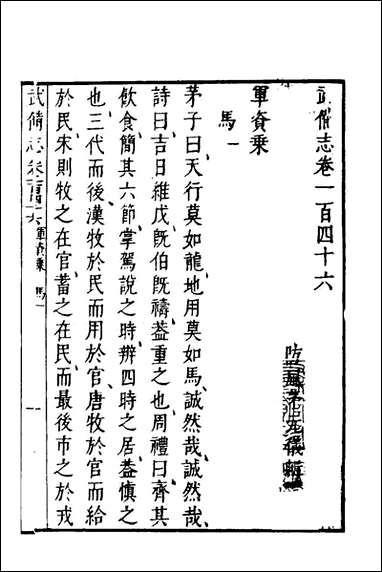 武備志卷一百四十六
防風茅元儀輯
軍資乗
馬一
茅子曰天行莫如龍地用莫如馬誠然哉誠然哉
詩曰吉日維戊旣伯旣禱葢重之也周禮曰齊其
飲食簡其六節掌駕說之時辨四時之居葢慎之
也三代而後漢牧於民而用於官唐牧於官而給
於民宋則牧之在官蓄之在民而最後市之於戎
武備志卷一百四十六 軍資乗 馬一 一